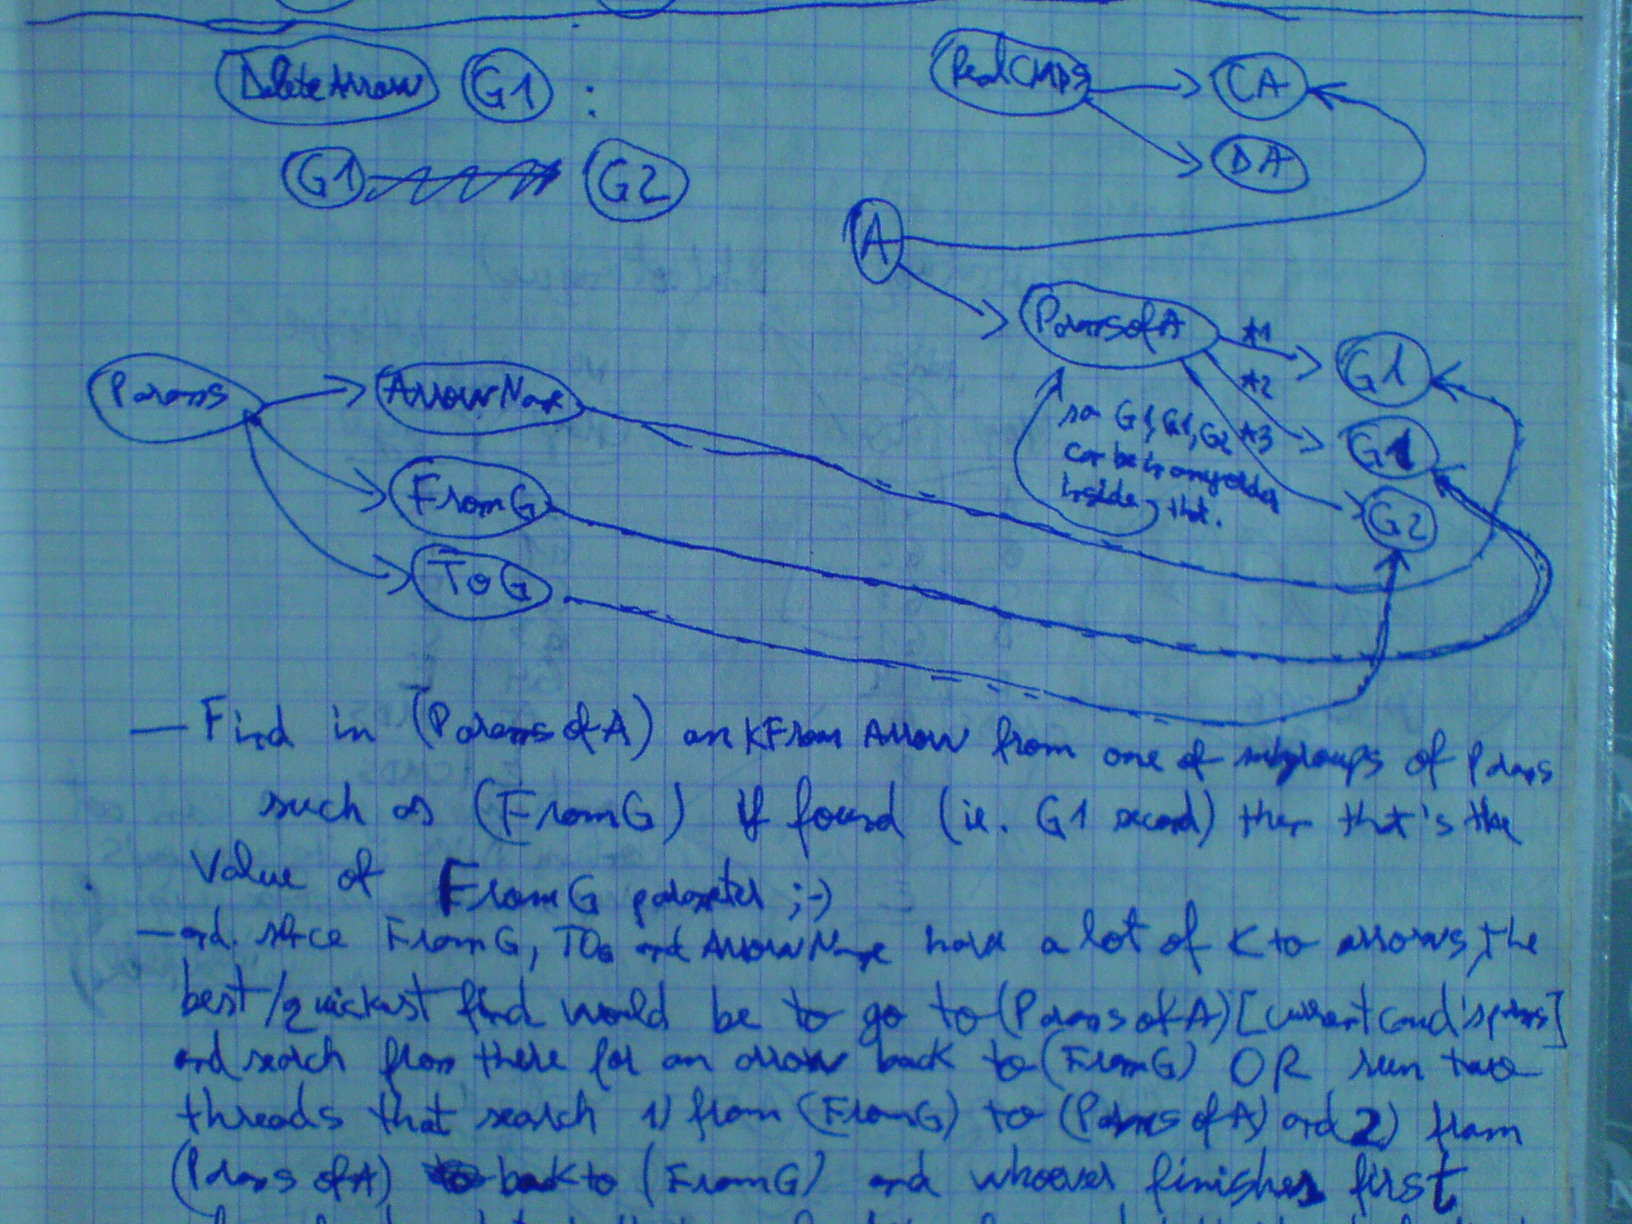 DeleteArrow G1 :
G1 G2
RealCMDs CA
DA
A
ParamsofA
*1 G1
*2 G1
*3 G2
so G1, G1, G2
can be in any order
inside that.
Params
ArrowName
FromG
ToG
— Find in (Params of A) an kFrom Arrow from one of subgroups of Params
such as (FromG) if found (ie. G1 second) then that's the
value of FromG parameter ;-)
— and since FromG, TOG and ArrowName have a lot of k to arrows, the
best/quickest find would be to go to (Params of A) [current cmd's params]
and search from there for an arrow back to (FromG) OR run two
threads that search 1) from (FromG) to (Params of A) and 2) from
(Params of A) back to (FromG) and whoever finishes first